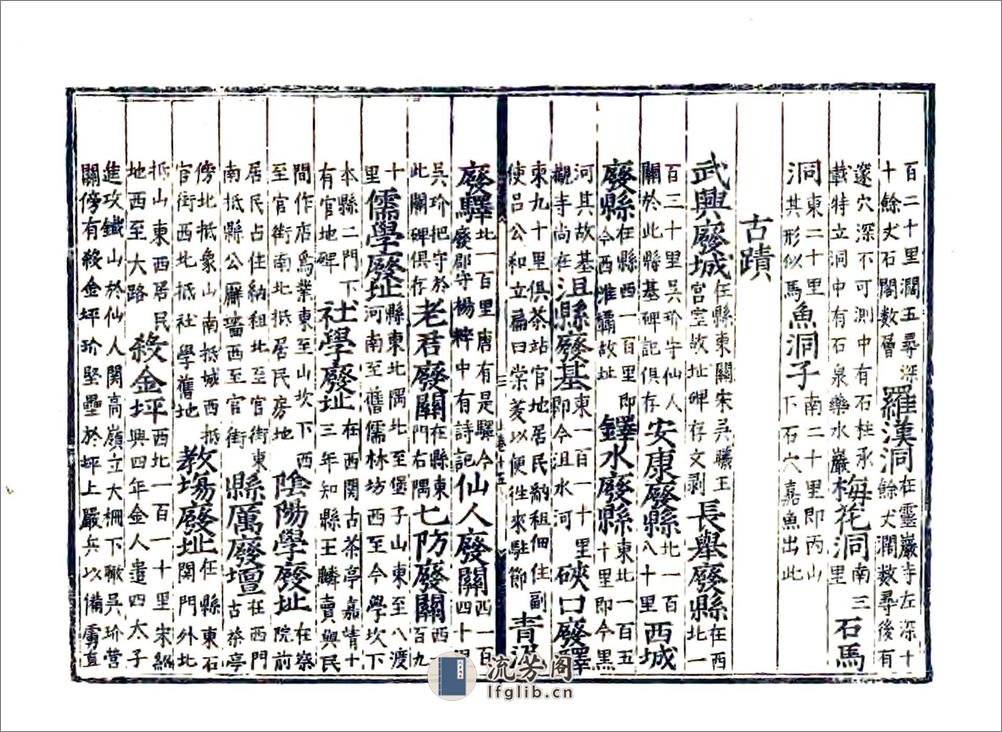 百二十里濶五尋深十餘丈石閣數層羅漢洞在靈巖寺左深十餘丈濶數尋後有
邃穴深不可測中有石柱承載特立洞中有石泉藥水巖梅花洞南三里石馬
洞東二十里其形似馬魚洞子南二十里即丙山下石穴嘉魚出此
古蹟
武興廢城在縣東關宋吳曦王宮室故址碑存文剥長舉廢縣在西北一
百三十里吳玠守仙人關於此縣基碑記俱存安康廢縣北一百八十里西城
廢縣在縣西一百里即今西淮故址鐸水廢縣東北一百五十里即今黑
河其故基觀寺尚在沮縣廢基東一百一十里即今沮水河硤口廢驛
東九十里俱茶站官地居民納租佃住副使吕公和立扁曰棠茇以便徃來駐節青泥
廢驛北一百里唐有是驛今廢郡守楊粹中有詩記仙人廢關西一百四十里
吳玠把守於此關碑俱存老君廢關在縣東門右隅七防廢關西百九
十里儒學廢址縣東北隅北至堡子山東至八渡河南至舊儒林坊西至今學坎下
本縣二門下有官地碑社學廢址在西関古茶亭嘉靖十三年知縣王麟賣與民
間作店為業東至山坎下西至官街南北抵居民房地陰陽學廢址在察院前
居民占住納租北至官街東南抵縣公廨墻西至官街縣厲廢壇在西門古茶亭
傍北抵象山南抵城西抵官街西北抵社學舊地教塲廢址在縣東石関門外北
抵山東西居民地西至大路殺金坪西北一百一十里宋紹興四年金人遣四太子
進攻鐵山於仙人関高嶺立大柵下瞰吳玠營關傍有殺金坪玠堅壘於坪上嚴兵以備虜直
流芳阁
lfglib.cn